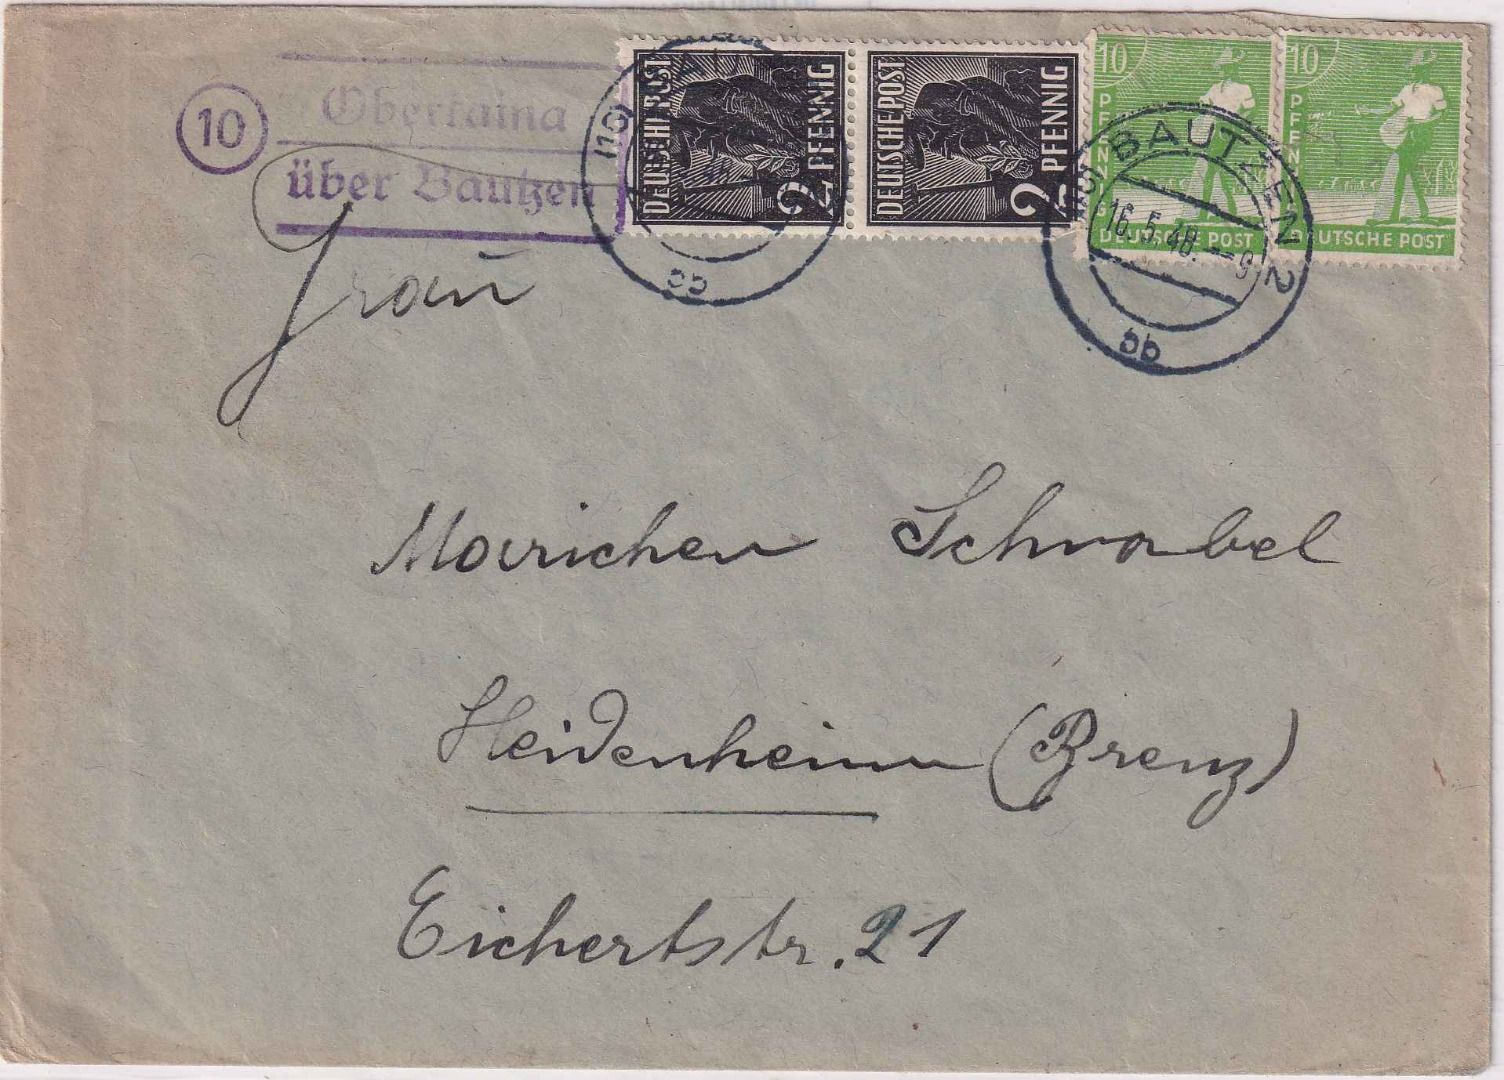 10
Oberkaina
über Bautzen
DEUTSCHE POST
2 PFENNIG
DEUTSCHE POST
2 PFENNIG
10
PFENNIG
DEUTSCHE POST
10
PFENNIG
DEUTSCHE POST
(10)
bb
BAUTZEN 2
16.5.48.
bb
Frau
Mariechen Schnabel
Heidenheim (Brenz)
Eichertstr. 21